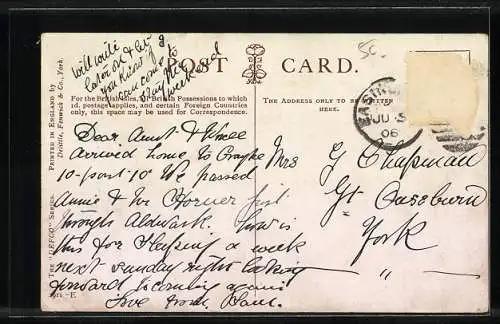 Will write
later on & let
you know if I
can come to
stay the
weekend
POST CARD.
5c
For the British Isles, or British Possessions to which
½d. postage applies, and certain Foreign Countries
only, this space may be used for Correspondence.
THE ADDRESS ONLY TO BE WRITTEN
HERE.
JU
06
PRINTED IN ENGLAND BY
Delittle, Fenwick & Co., York.
THE "DEFCO" SERIES.
Dear Aunt &
Arrived home to Crayke
10-past-10 We passed
Annie & Mr Horner just
through Aldwark. How is
this for a week
next sunday night looking
forward to coming again
Love from
Mrs G Chapman
Gt Ouseburn
York
"